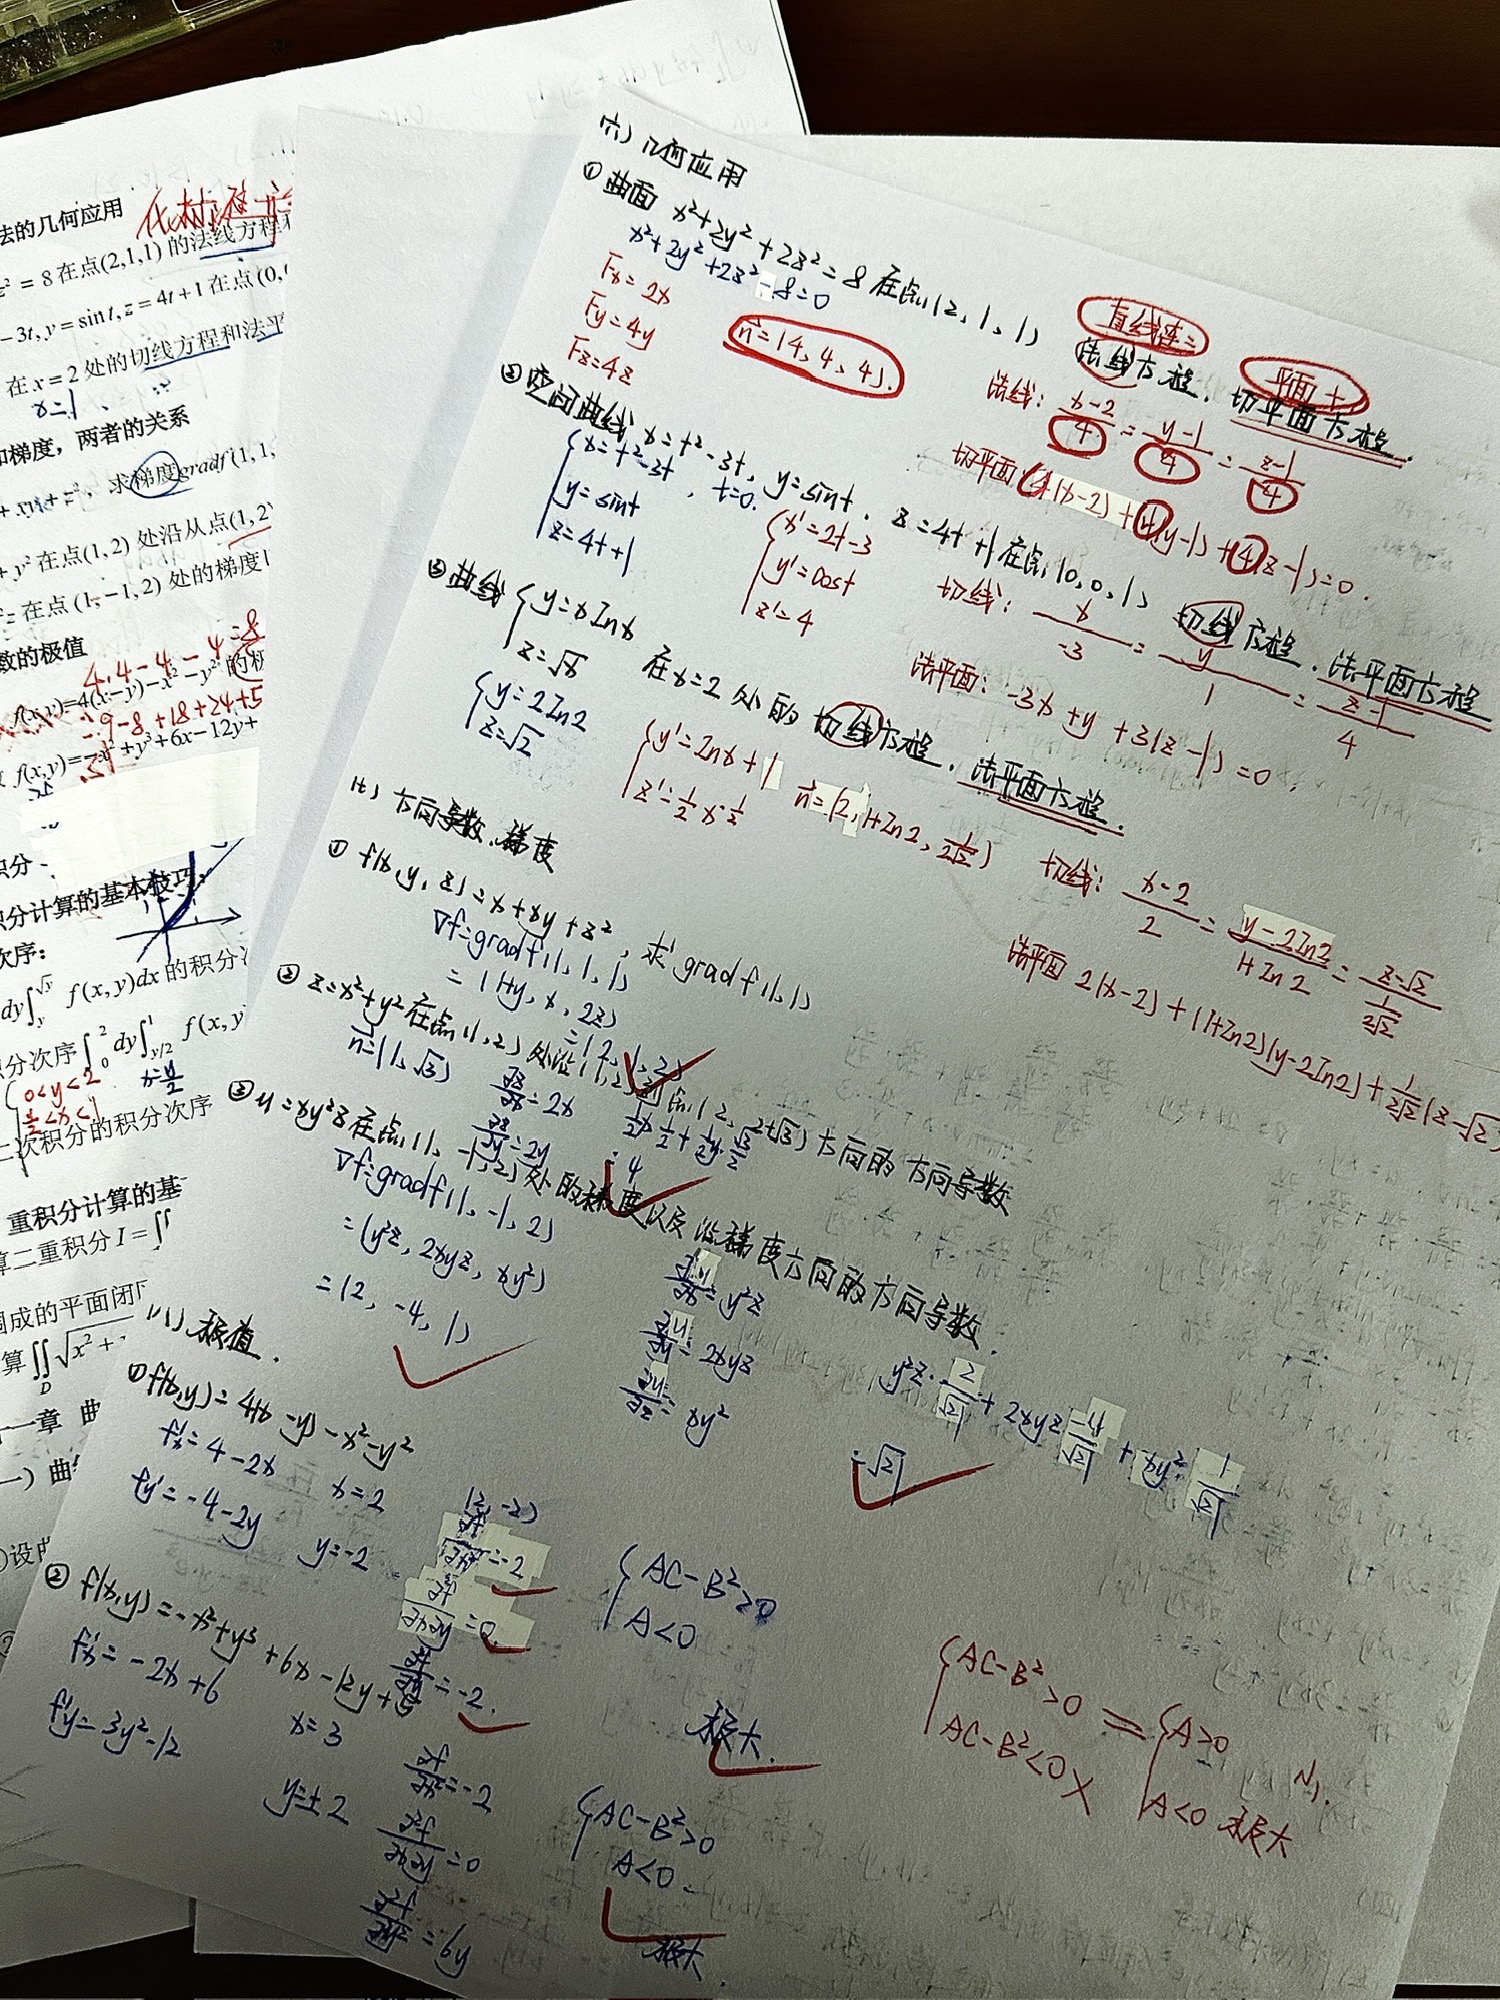 法的几何应用
z² = 8 在点(2,1,1) 的法线方程
- 3t, y = sin t, z = 4t + 1 在点 (0,
在 x = 2 处的切线方程和法平
x=1
和梯度，两者的关系
+ xy + z², 求梯度gradf(1,1,
+ y² 在点(1,2) 处沿从点(1,2)
z 在点 (1,-1,2) 处的梯度
数的极值
4.4-4-4=8
f(x,y)=4(x-y)-x²-y² 的极
-9-8+18+24+5
f(x,y)=-x²+y³+6x-12y+
31
积分
积分计算的基本技巧:
次序:
f(x,y)dx 的积分
积分次序 ∫₀² dy ∫_{y/2}^1 f(x,y
0<y<2
y/2<x<1
x=y/2
二次积分的积分次序
重积分计算的基
算二重积分 I = ∬
围成的平面闭
算 ∬_D √x² +
一章 曲
一) 曲
①设
六) 几何应用
① 曲面 x²+2y²+2z²=8 在点(2,1,1) 法线方程, 切平面方程.
直线连=
平面+
x²+2y²+2z²-8=0
Fx=2x
Fy=4y
Fz=4z
n=(4,4,4).
法线: (x-2)/4 = (y-1)/4 = (z-1)/4
切平面 4(x-2)+4(y-1)+4(z-1)=0.
② 空间曲线 x=t²-3t, y=sint, z=4t+1 在点(0,0,1) 切线方程, 法平面方程
{x=t²-3t, t=0.
y=sint
z=4t+1
{x'=2t-3
y'=cost
z'=4
切线: x/-3 = y/1 = (z-1)/4
法平面: -3x+y+3(z-1)=0.
③ 曲线 {y=xlnx
z=√x
在x=2处的切线方程, 法平面方程.
{y=2ln2
z=√2
{y'=lnx+1
z'=1/2·x-1/2
n=(2,1+ln2,1/2√2)
切线: (x-2)/2 = (y-2ln2)/(1+ln2) = (z-√2)/(1/2√2)
法平面 2(x-2)+(1+ln2)(y-2ln2)+1/2√2(z-√2)
七) 方向导数.梯度
① f(x,y,z)=x+xy+z², 求gradf(1,1,1)
∇f=gradf(1,1,1)
=(1+y,x,2z)
=(2,1,2)
② z=x²+y²在点(1,2)处沿(1,2)到点(2,2+√3)方向的方向导数
n=(1,√3)
∂z/∂x=2x
∂z/∂y=2y
③ u=xy²z在点(1,-1,2)处的梯度以及沿梯度方向的方向导数.
∇f=gradf(1,-1,2)
=(y²z,2xyz,xy²)
=(2,-4,1)
∂u/∂x=y²z
∂u/∂y=2xyz
∂u/∂z=xy²
y²z·2/√21+2xyz·-4/√21+xy²·1/√21
=√21
八) 极值.
① f(x,y)=4(x-y)-x²-y²
f'x=4-2x
x=2
f'y=-4-2y
y=-2
(2,-2)
∂²f/∂x²=-2
∂²f/∂x∂y=0.
∂²f/∂y²=-2.
{AC-B²>0
A<0
极大.
② f(x,y)=-x²+y³+6x-12y+5
f'x=-2x+6
x=3
f'y=3y²-12
y=±2
∂²f/∂x²=-2
∂²f/∂x∂y=0
∂²f/∂y²=6y
{AC-B²>0
A<0.
极大.
{AC-B²>0 = {A>0 小.
AC-B²<0 ×
A<0 极大